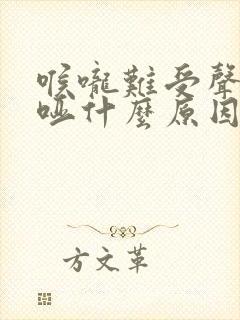 喉嚨難受聲
啞什麼原因
方文革